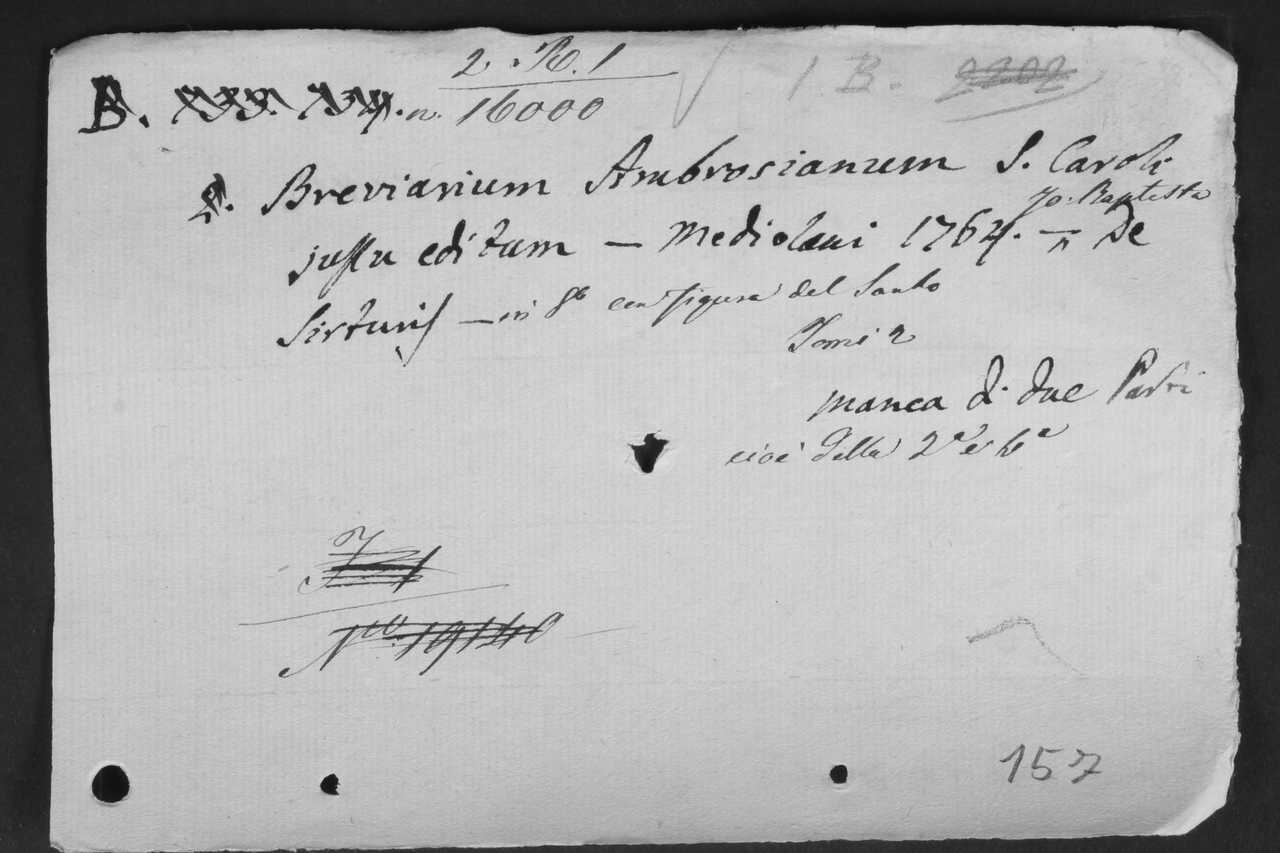 2. R. 1
B. n. 16000
1 B. 2202
Breviarium Ambrosianum S. Caroli
Jo: Baptista
jussu editum — Mediolani 1764. — De
Sirturis — in 8º con figura del Santo
Tomi 2
manca di due Parti
cioè della 2ª e 6ª
Nº 19140
157